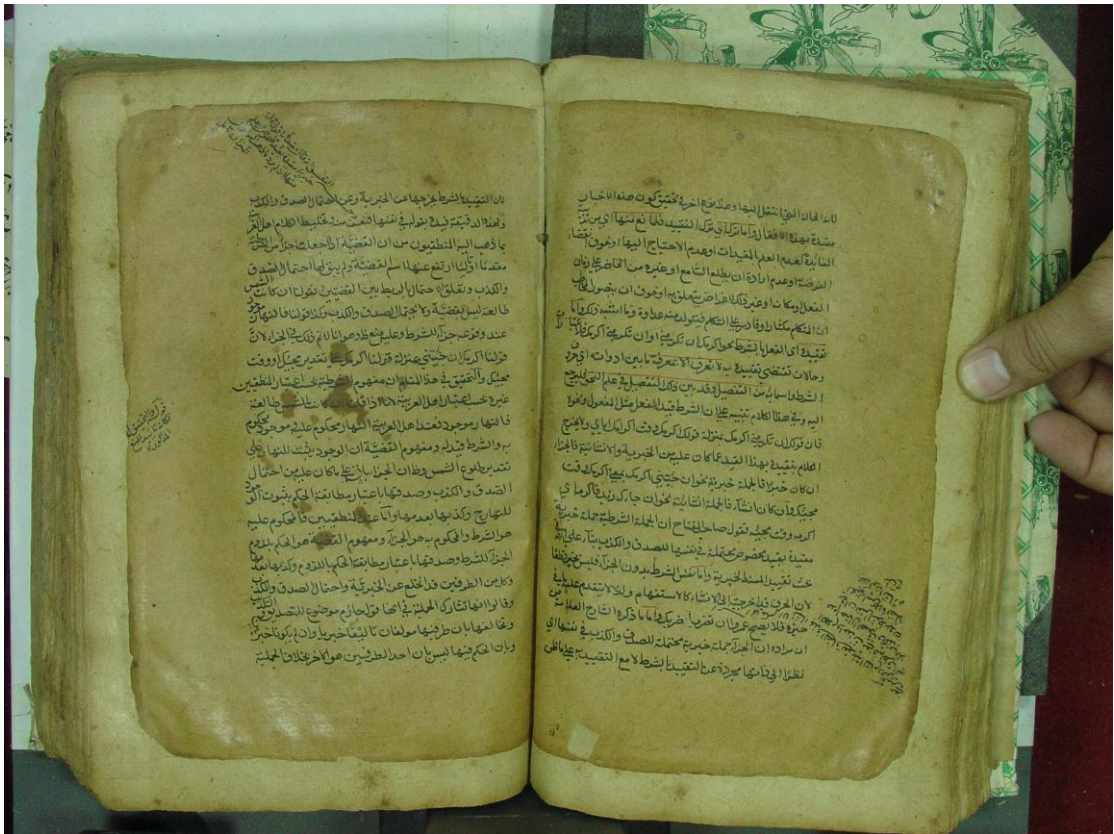 لان الحال التي انتقل اليها وهذا نوع اخر في تحقيق كون هذه الاخبار
مقيدة بهذه الافعال واما تركه اى ترك التقييد فلمانع منها اى من تربية
الفائدة لعدم العلم بالمقيدات او عدم الاحتياج اليها او خوف انقضاء
الفرصة او عدم ارادة ان يطلع السامع او غيره من الحاضرين على زمان
الفعل ومكانه او غير ذلك لاغراض يتعلق به او خوف ان يتصور المخاطب
ان المتكلم مكثار او قادر على التكلم فيتولد منه عداوة وما اشبه ذلك واما
تقييده اى الفعل بالشرط نحو اكرمك ان تكرمنى او ان تكرمنى اكرمك فلاعتبارات
وحالات تقتضى تقييده به لا تعرف الا بمعرفة ما بين ادواته اى حروف
الشرط واسمائه من التفصيل وقد بين ذلك التفصيل في علم النحو فليرجع
اليه وفي هذا الكلام تنبيه على ان الشرط قيد للفعل مثل المفعول ونحوه
فان قولك ان تكرمنى اكرمك بمنزلة قولك اكرمك وقت اكرامك اياى ولا يخرج
الكلام بتقييده بهذا القيد عما كان عليه من الخبرية والانشائية فالجزاء
ان كان خبرا فالجملة خبرية نحو ان جئتنى اكرمك بمعنى اكرمك وقت
مجيئك وان كان انشاء فالجملة انشائية نحو ان جاءك زيد فاكرمه اى
اكرمه وقت مجيئه فقول صاحب المفتاح ان الجملة الشرطية جملة خبرية
مقيدة بقيد مخصوص محتملة في نفسها للصدق والكذب بناء على انه في
بحث تقييد المسند الخبرية واما نفس الشرط بدون الجزاء فليس بخبر قطعا
لان الحرف قد اخرجته الى الانشاء كالاستفهام ولذا لا يتقدم عليه ما في
حيزه فلا يصح عمروا ان تضرب اضربك واما ما ذكره الشارح العلامة من
ان مراده ان الجزاء جملة خبرية محتملة للصدق والكذب في نفسها اى
نظرا الى ذاتها مجردة عن التقييد بالشرط لا مع التقييد به على ما ظن
لان
لان التقييد بالشرط يخرجها عن الخبرية وعن احتمال الصدق والكذب
ولهذه الدقيقة قيده بقوله في نفسها فتعسف منه وتخليط لكلام اهل العربية
بما ذهب اليه المنطقيون من ان القضية اذا جعلت جزأ من الشرطية
مقدما او تاليا ارتفع عنها اسم القضية ولم يبق لها احتمال الصدق
والكذب وتعلق الاحتمال بالربط بين القضيتين فقولنا ان كانت الشمس
طالعة ليس بقضية ولا محتمل الصدق والكذب وكذا قولنا فالنهار موجود
عند وقوعه جزاء للشرط وعليه منع ظ وهو انا لا نم ذلك في الجزاء لان
قولنا اكرمك ان جئتنى بمنزلة قولنا اكرمك على تقدير مجيئك او وقت
مجيئك والتحقيق في هذا المقام ان مفهوم الشرطية بحسب اعتبار المنطقيين
غيره بحسب اعتبار اهل العربية لانا اذا قلنا ان كان الشمس طالعة
فالنهار موجود فعند اهل العربية النهار محكوم عليه وموجود محكوم
به والشرط قيد له ومفهوم القضية ان الوجود يثبت للنهار على
تقدير طلوع الشمس وظ ان الجزاء باق على ما كان عليه من احتمال
الصدق والكذب وصدقها باعتبار مطابقة الحكم بثبوت الوجود
للنهار ح وكذبها بعدمها واما عند المنطقيين فالمحكوم عليه
هو الشرط والمحكوم به هو الجزاء ومفهوم القضية هو الحكم بلزوم
الجزاء للشرط وصدقها باعتبار مطابقة الحكم باللزوم وكذبها بعدمها
وكل من الطرفين قد انخلع عن الخبرية واحتمال الصدق والكذب
وقالوا انها تشارك الحملية في انها قول جازم موضوع للتصديق والتكذيب
وتخالفها بان طرفيها مؤلفان تاليفا خبريا وان لم يكونا خبرين
وبان الحكم فيها ليس بان احد الطرفين هو الاخر بخلاف الحملية